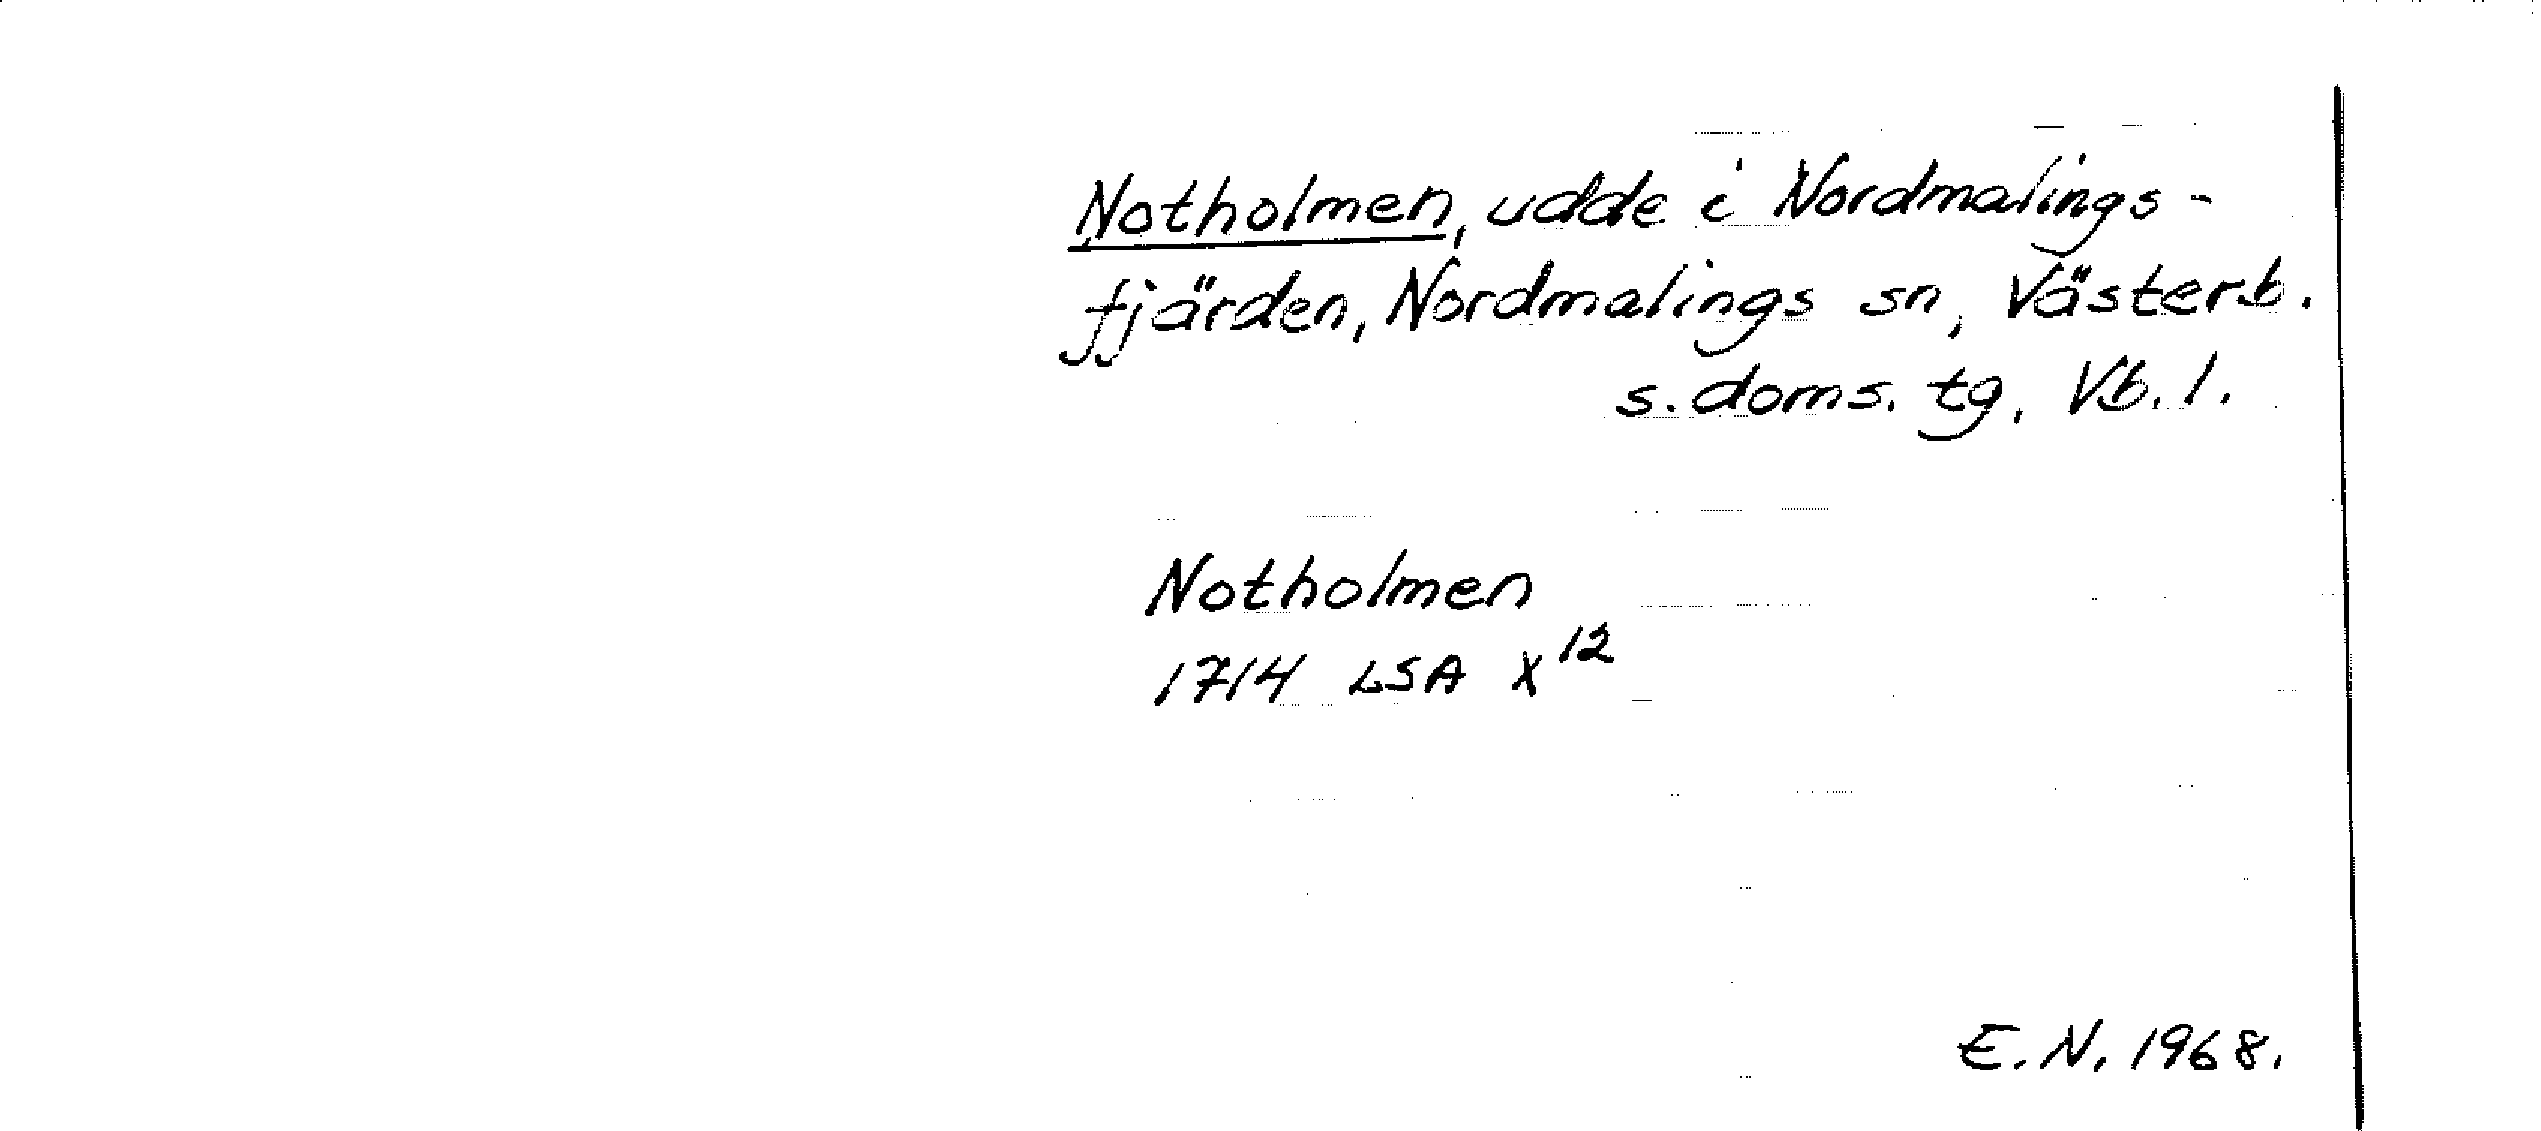 Notholmen, udde i Nordmalings-
fjärden, Nordmalings sn, Västerb.
s. doms. tg, Vb. l.
Notholmen
1714 LSA X¹²
E. N. 1968.